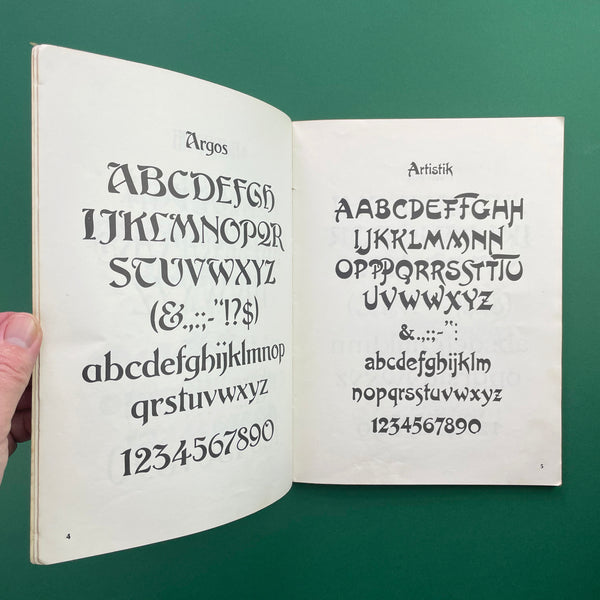 Argos
ABCDEFGH
IJKLMNOPQR
STUVWXYZ
(&.,:;-"!?$)
abcdefghijklmnop
qrstuvwxyz
1234567890
4
Artistik
AABCDEFFGHH
IJKKLMMNN
OPPPQRRSSTTTU
UVWWXYZ
&.,:;-":
abcdefghijklm
nopqrsstuvwxyz
1234567890
5